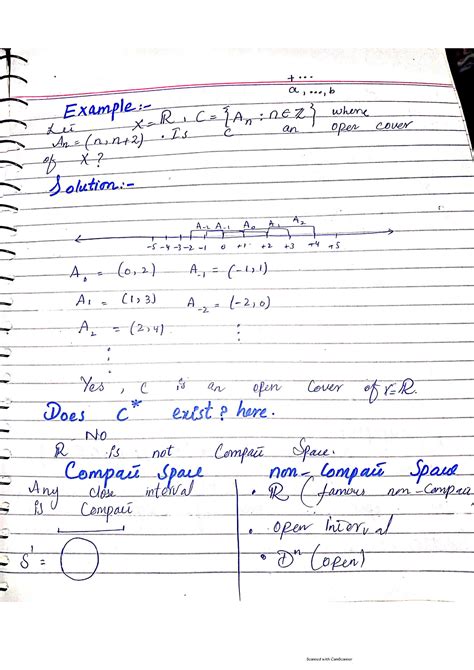 + ...
a, ..., b
Example:-
Let X = ℝ, C = {Aₙ : n ∈ ℤ} where
Aₙ = (n, n+2) . Is C an open cover
of X ?
Solution:-
A₋₂ A₋₁ A₀ A₁ A₂
-5 -4 -3 -2 -1 0 +1 +2 +3 +4 +5
A₀ = (0, 2) A₋₁ = (-1, 1)
A₁ = (1, 3) A₋₂ = (-2, 0)
A₂ = (2, 4) ⋮
⋮
Yes, C is an open cover of ℝ.
Does C* exist? here.
No
ℝ is not Compact Space.
Compact Space non-Compact Space
Any close interval • ℝ (famous non-Compac
is Compact
• open Interval
S¹ = • Dⁿ (open)
Scanned with CamScanner